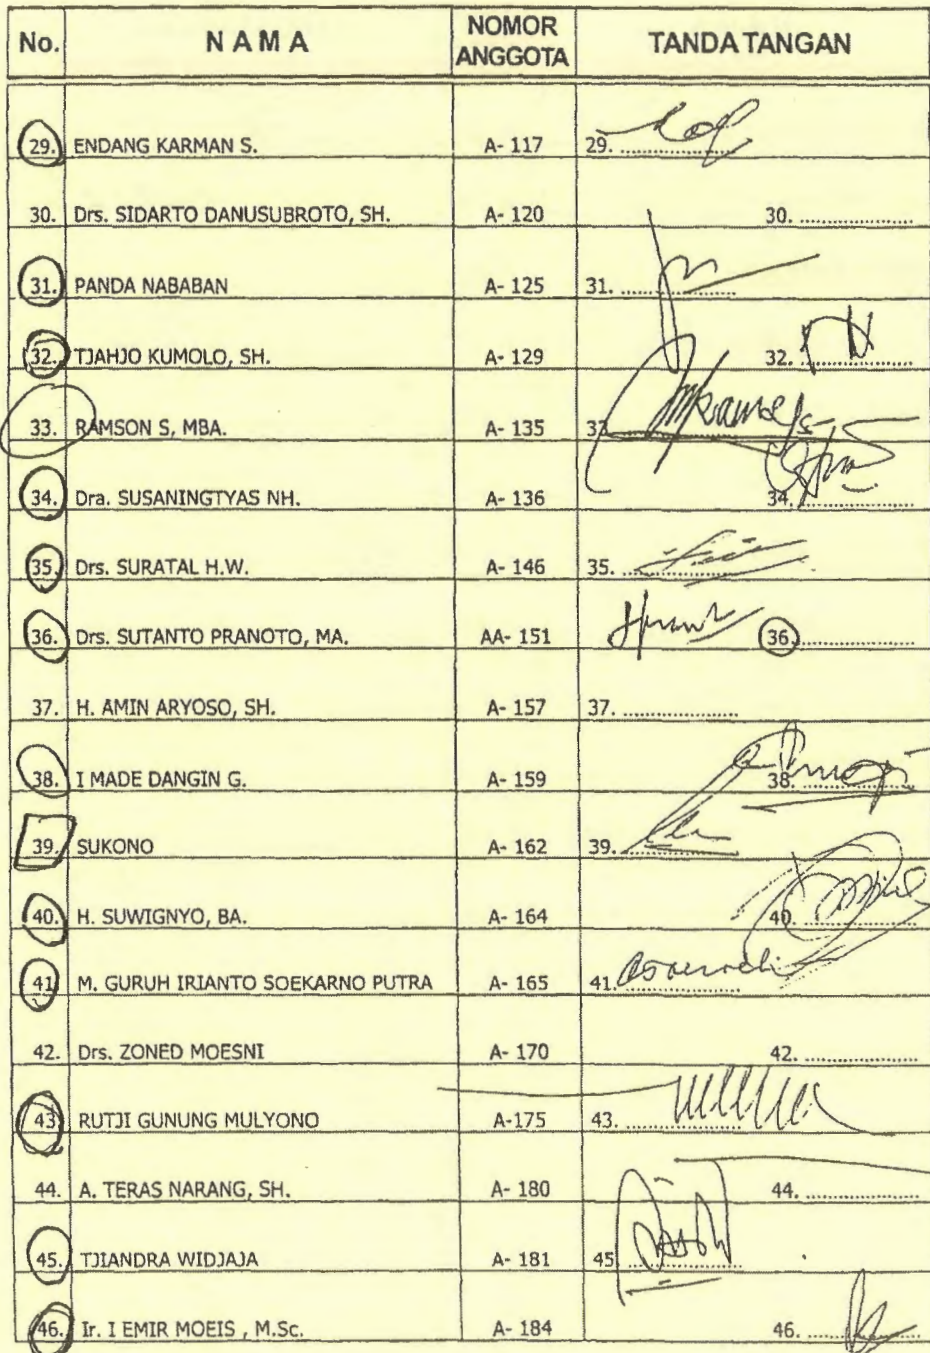 No. N A M A NOMOR ANGGOTA TANDA TANGAN
29. ENDANG KARMAN S. A- 117 29. ....................
30. Drs. SIDARTO DANUSUBROTO, SH. A- 120 30. ....................
31. PANDA NABABAN A- 125 31. ....................
32. TJAHJO KUMOLO, SH. A- 129 32. ....................
33. RAMSON S, MBA. A- 135 33
34. Dra. SUSANINGTYAS NH. A- 136 34. ....................
35. Drs. SURATAL H.W. A- 146 35. ....................
36. Drs. SUTANTO PRANOTO, MA. AA- 151 36. ....................
37. H. AMIN ARYOSO, SH. A- 157 37. ....................
38. I MADE DANGIN G. A- 159 38. ....................
39. SUKONO A- 162 39. ....................
40. H. SUWIGNYO, BA. A- 164 40. ....................
41 M. GURUH IRIANTO SOEKARNO PUTRA A- 165 41. ....................
42. Drs. ZONED MOESNI A- 170 42. ....................
43 RUTJI GUNUNG MULYONO A-175 43. ....................
44. A. TERAS NARANG, SH. A- 180 44. ....................
45. TJIANDRA WIDJAJA A- 181 45 ....................
46. Ir. I EMIR MOEIS , M.Sc. A- 184 46. ....................